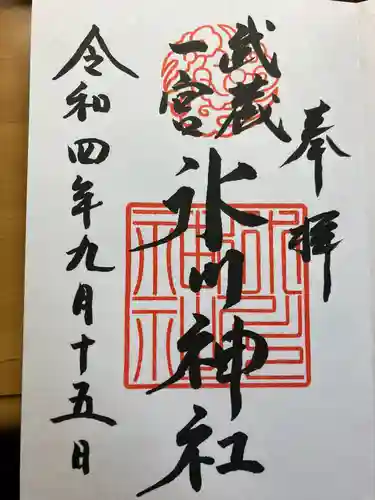 奉拝
武蔵
一宮
氷川神社
令和四年九月十五日
氷川神社